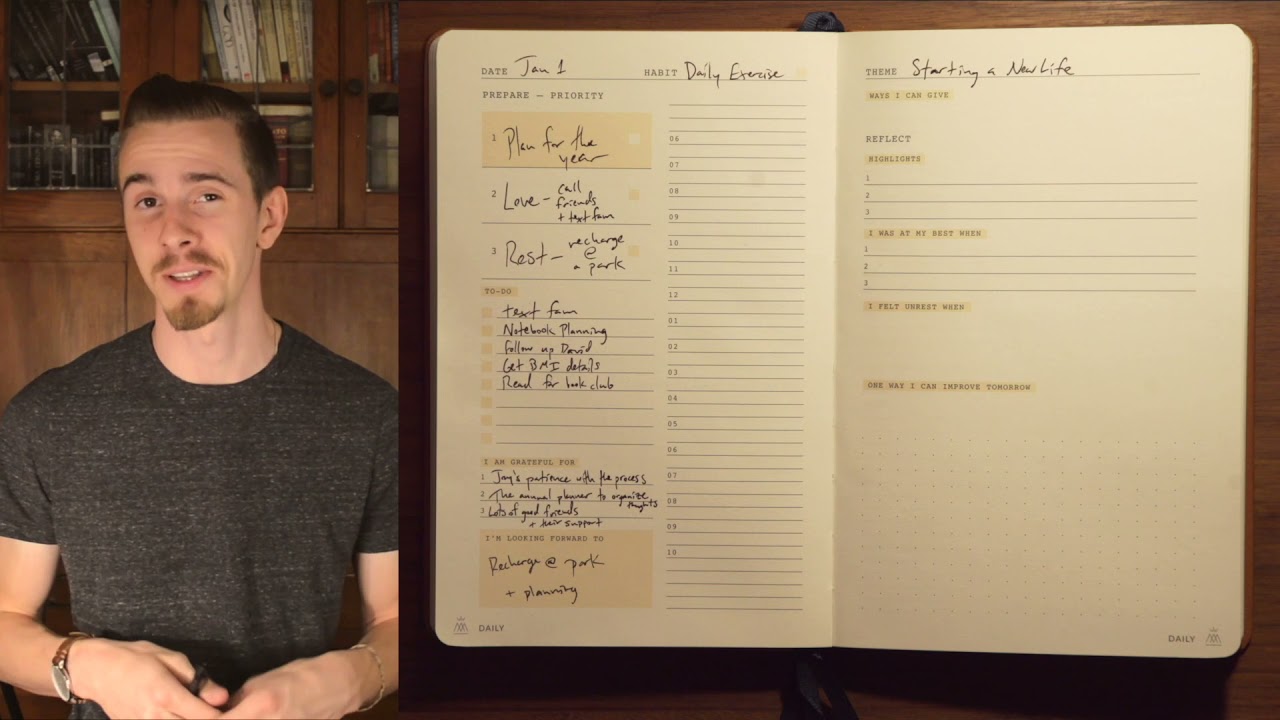 DATE Jan 1 HABIT Daily Exercise
PREPARE — PRIORITY
1 Plan for the
year
2 Love - call
friends
+ text fam
3 Rest - recharge
@
a park
TO-DO
text fam
Notebook Planning
Follow up David
Get BMI details
Read for book club
I AM GRATEFUL FOR
1 Jay's patience with the process
2 The annual planner to organize
thoughts
3 Lots of good friends
+ their support
I'M LOOKING FORWARD TO
Recharge @ park
+ planning
DAILY
06
07
08
09
10
11
12
01
02
03
04
05
06
07
08
09
10
THEME Starting a New Life
WAYS I CAN GIVE
REFLECT
HIGHLIGHTS
1
2
3
I WAS AT MY BEST WHEN
1
2
3
I FELT UNREST WHEN
ONE WAY I CAN IMPROVE TOMORROW
DAILY